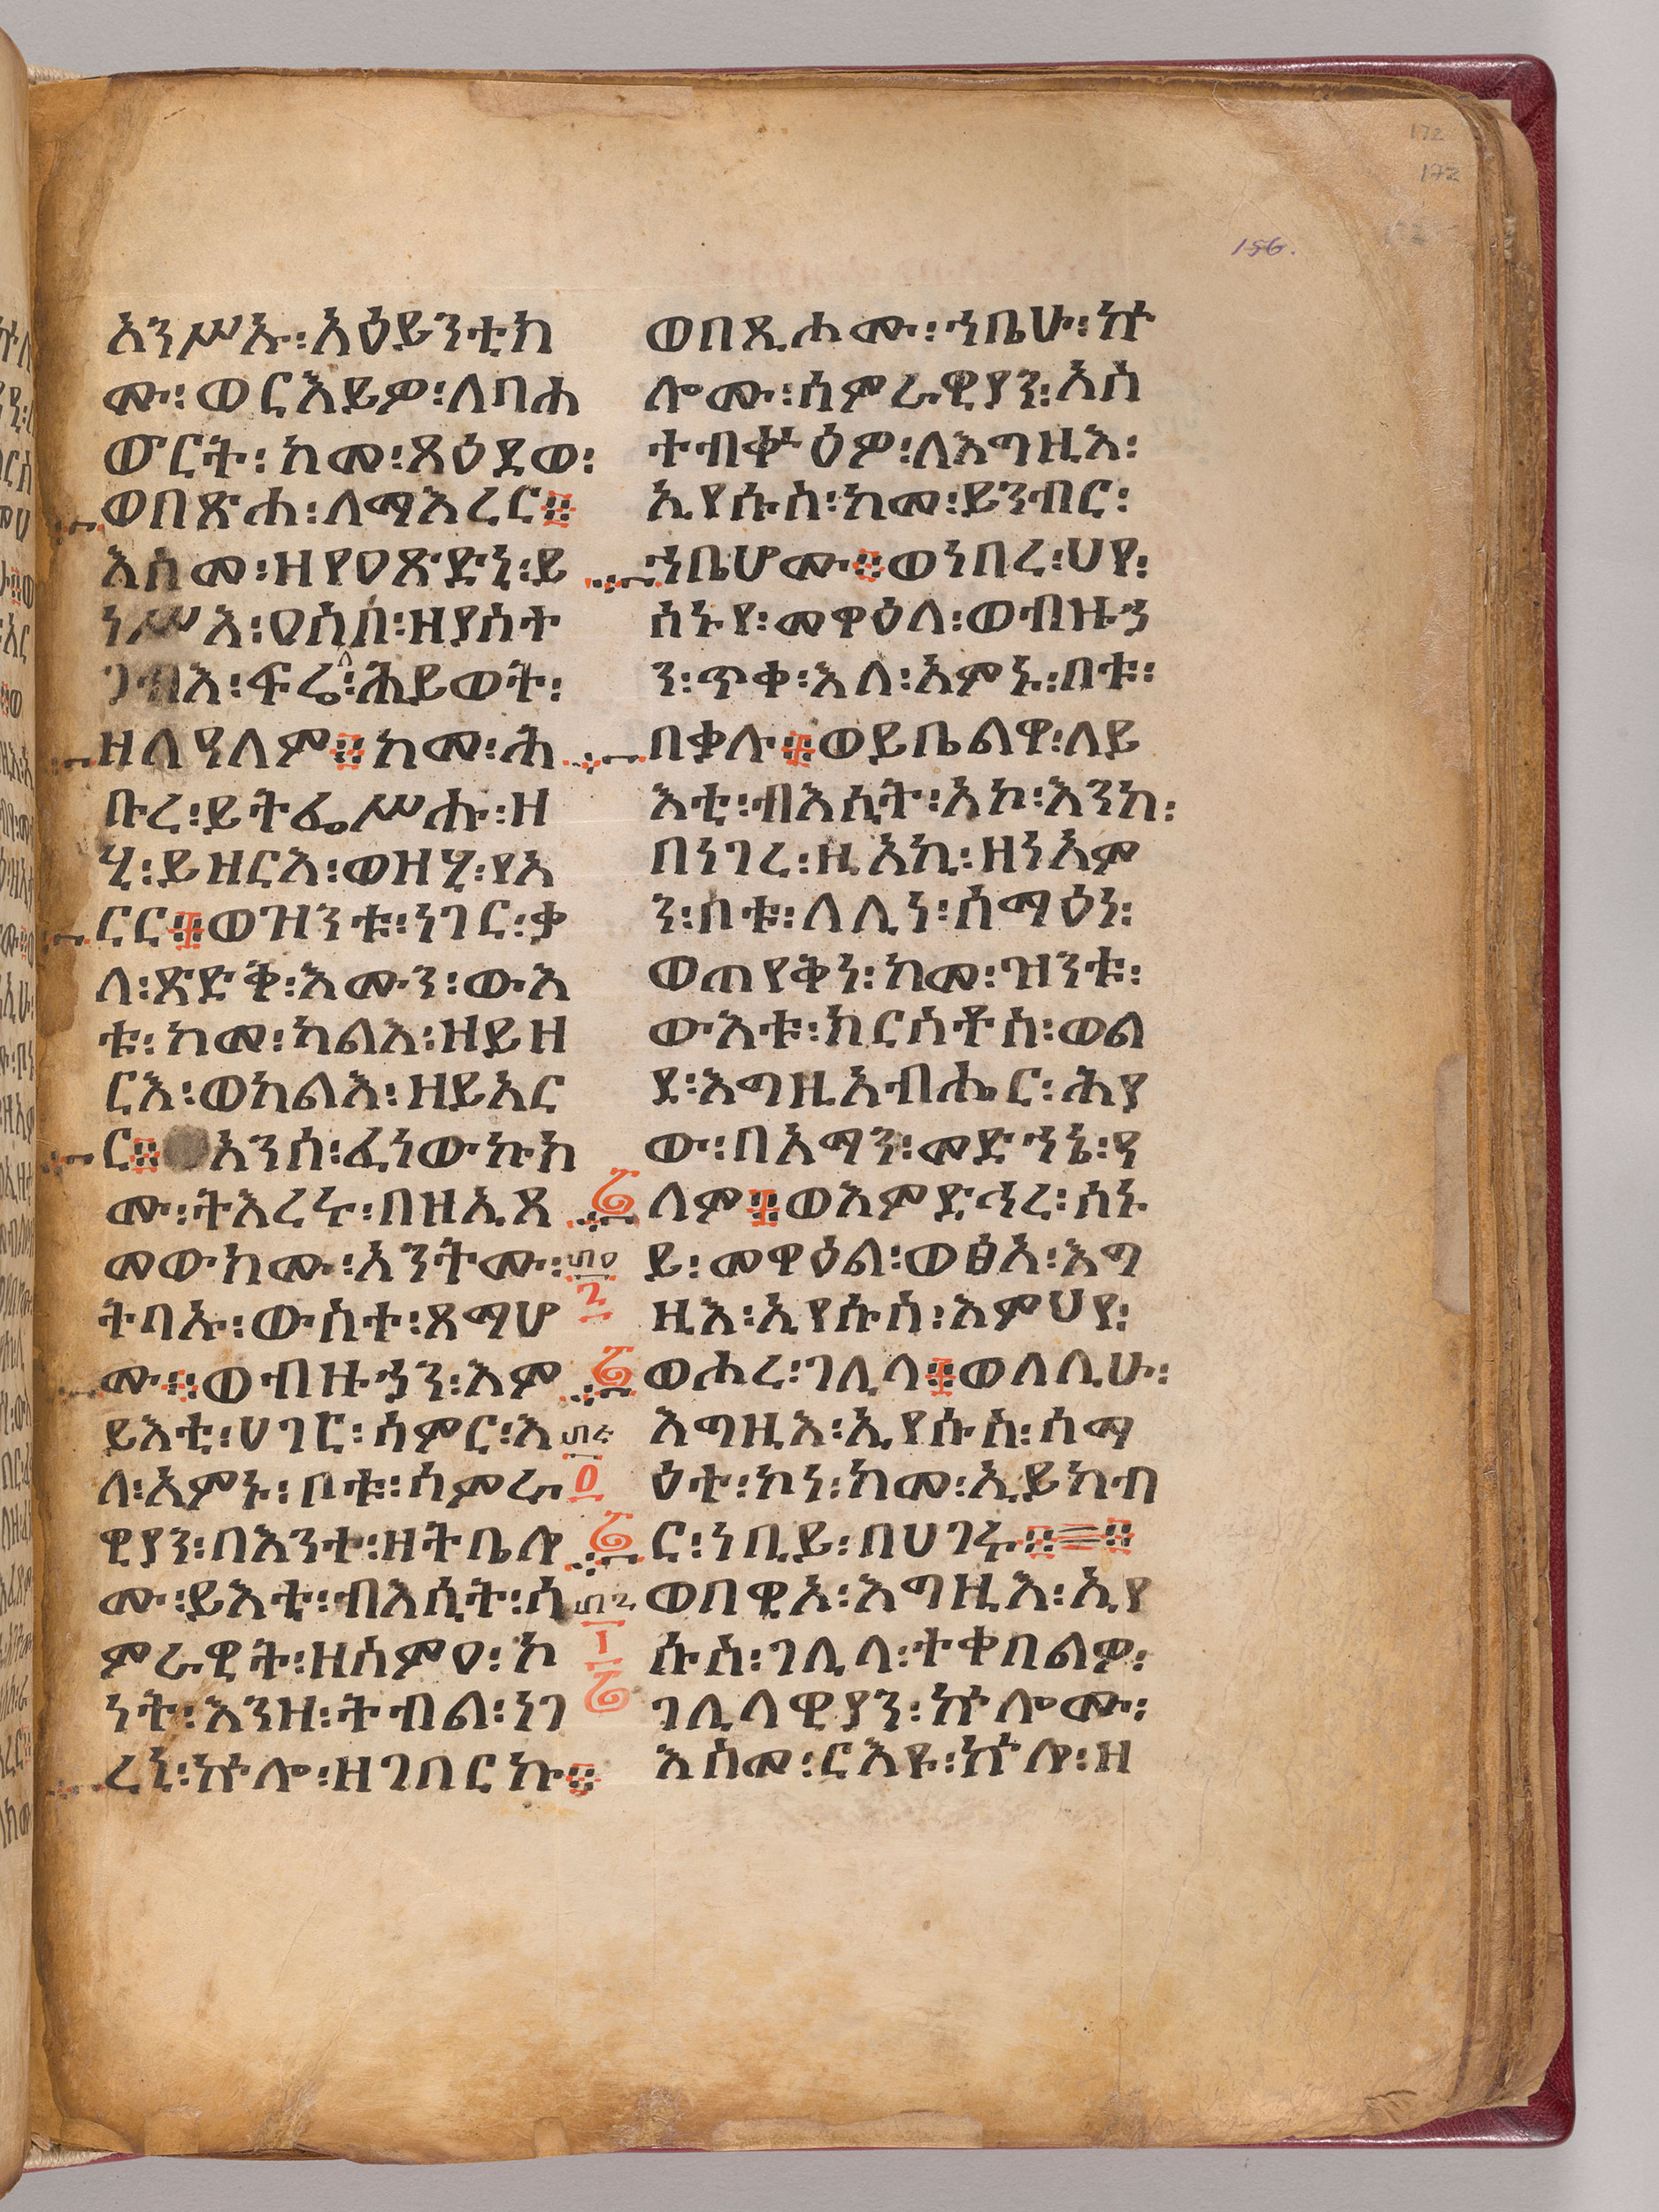 172
172
156.
አንሥኡ፡አዕይንቲክ
ሙ፡ወርእይዎ፡ለባሐ
ውርት፡ከመ፡ጸዕደወ፡
ወበጽሐ፡ለማእረር፨
እስመ፡ዘየዐጽድ፡ይ
ነሥእ፡ዐስበ፡ዘያስተ
ጋብእ፡ፍሬ፡ለሕይወት፡
ዘለዓለም፨ከመ፡ሕ
ቡረ፡ይትፌሥሑ፡ዘ
ሂ፡ይዘርእ፡ወዘሂ፡የአ
ርር፨ወዝንቱ፡ነገር፡ቃ
ለ፡ጽድቅ፡እሙን፡ውእ
ቱ፡ከመ፡ካልእ፡ዘይዘ
ርእ፡ወካልእ፡ዘይአር
ር፨አንሰ፡ፈነውኩክ
ሙ፡ትእረሩ፡በዘኢጻ
መውክሙ፡አንትሙ፡
ትባኡ፡ውስተ፡ጻማሆ
ሙ፨ወብዙኃን፡እም
ይእቲ፡ሀገር፡ሳምር፡እ
ለ፡አምኑ፡ቦቱ፡ሳምራ
ዊያን፡በእንተ፡ዘትቤሎ
ሙ፡ይእቲ፡ብእሲት፡ሳ
ምራዊት፡ዘስምዐ፡ኮ
ነት፡እንዘ፡ትብል፡ነገ
ረኒ፡ኵሎ፡ዘገበርኩ፨
ወበጺሐሙ፡ኀቤሁ፡ኵ
ሎሙ፡ሰምራዊያን፡አስ
ተብቍዕዎ፡ለእግዚእ፡
ኢየሱስ፡ከመ፡ይንብር፡
ኀቤሆሙ፨ወነበረ፡ህየ፡
ሰኑየ፡መዋዕለ፡ወብዙኃ
ን፡ጥቀ፡እለ፡አምኑ፡በቱ፡
በቃሉ፨ወይቤልዋ፡ለይ
እቲ፡ብእሲት፡አኮ፡እንከ፡
በነገረ፡ዚአኪ፡ዘነአም
ን፡በቱ፡ለሊነ፡ሰማዕነ፡
ወጠየቅነ፡ከመ፡ዝንቱ፡
ውእቱ፡ክርስቶስ፡ወል
ደ፡እግዚአብሔር፡ሕያ
ው፡በአማን፡መድኀኔ፡ዓ
ለም፨ወእምድኅረ፡ሰኑ
ይ፡መዋዕል፡ወፅአ፡እግ
ዚእ፡ኢየሱስ፡እምህየ፡
ወሐረ፡ገሊላ፨ወለሊሁ፡
እግዚእ፡ኢየሱስ፡ሰማ
ዕተ፡ኮነ፡ከመ፡ኢይከብ
ር፡ነቢይ፡በሀገሩ፨=፨
ወበዊአ፡እግዚእ፡ኢየ
ሱስ፡ገሊላ፡ተቀበልዎ፡
ገሊላዊያን፡ኵሎሙ፡
እስመ፡ርእዩ፡ኵሎ፡ዘ